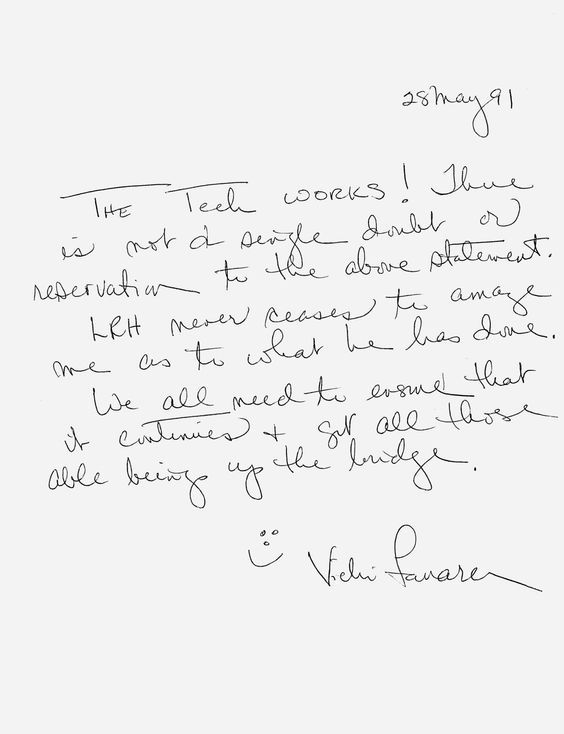 28 May 91
THE Tech WORKS! There
is not a single doubt or
reservation to the above statement.
LRH never ceases to amaze
me as to what he has done.
We all need to ensure that
it continues + get all those
able beings up the bridge.
Vicki